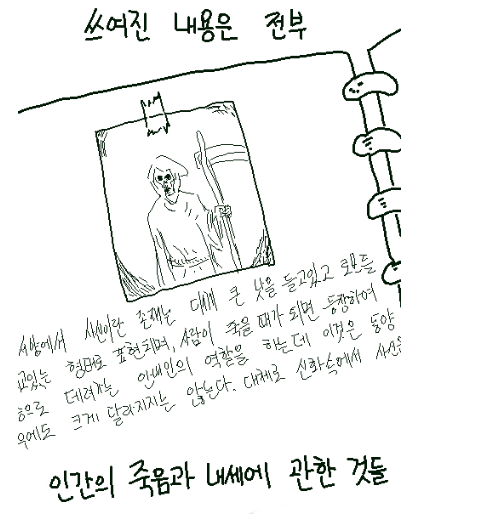 쓰여진 내용은 전부
서양에서 사신이란 존재는 대개 큰 낫을 들고있고 로브를
고있는 형태로 표현되며, 사람이 죽을 때가 되면 등장하여
승으로 데려가는 안내인의 역할을 하는데 이것은 동양
우에도 크게 달라지지는 않는다. 대체로 신화속에서 사신은
인간의 죽음과 내세에 관한 것들